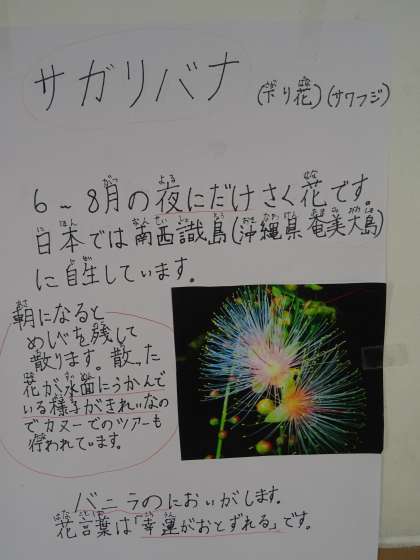 サガリバナ (下り花)(サワフジ)
6～8月の夜にだけさく花です。
日本では南西諸島(沖縄県 奄美大島)
に自生しています。
朝になると
めしべを残して
散ります。散った
花が水面にうかんで
いる様子がきれいなの
でカヌーでのツアーも
行われています。
バニラのにおいがします。
花言葉は「幸運がおとずれる」です。